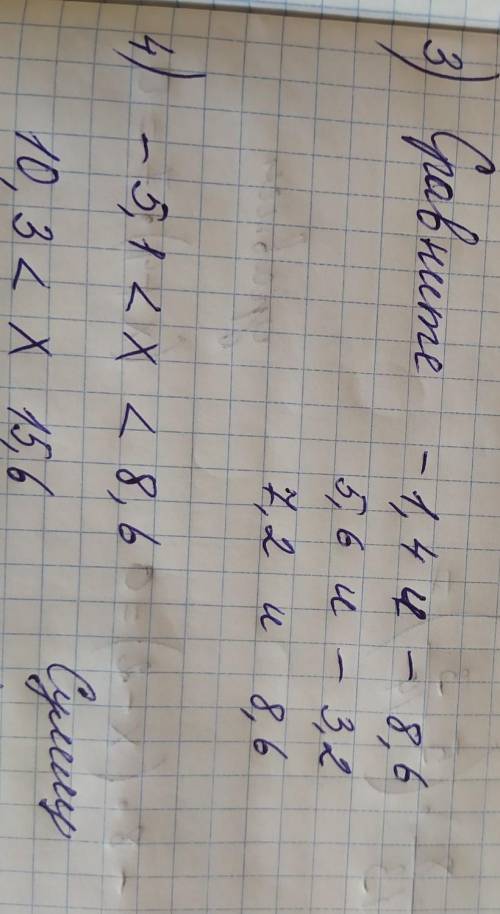 3) Сравните -1,4 и -8,6
5,6 и -3,2
7,2 и 8,6
4) -5,1 < x < 8,6
10,3 < x 15,6